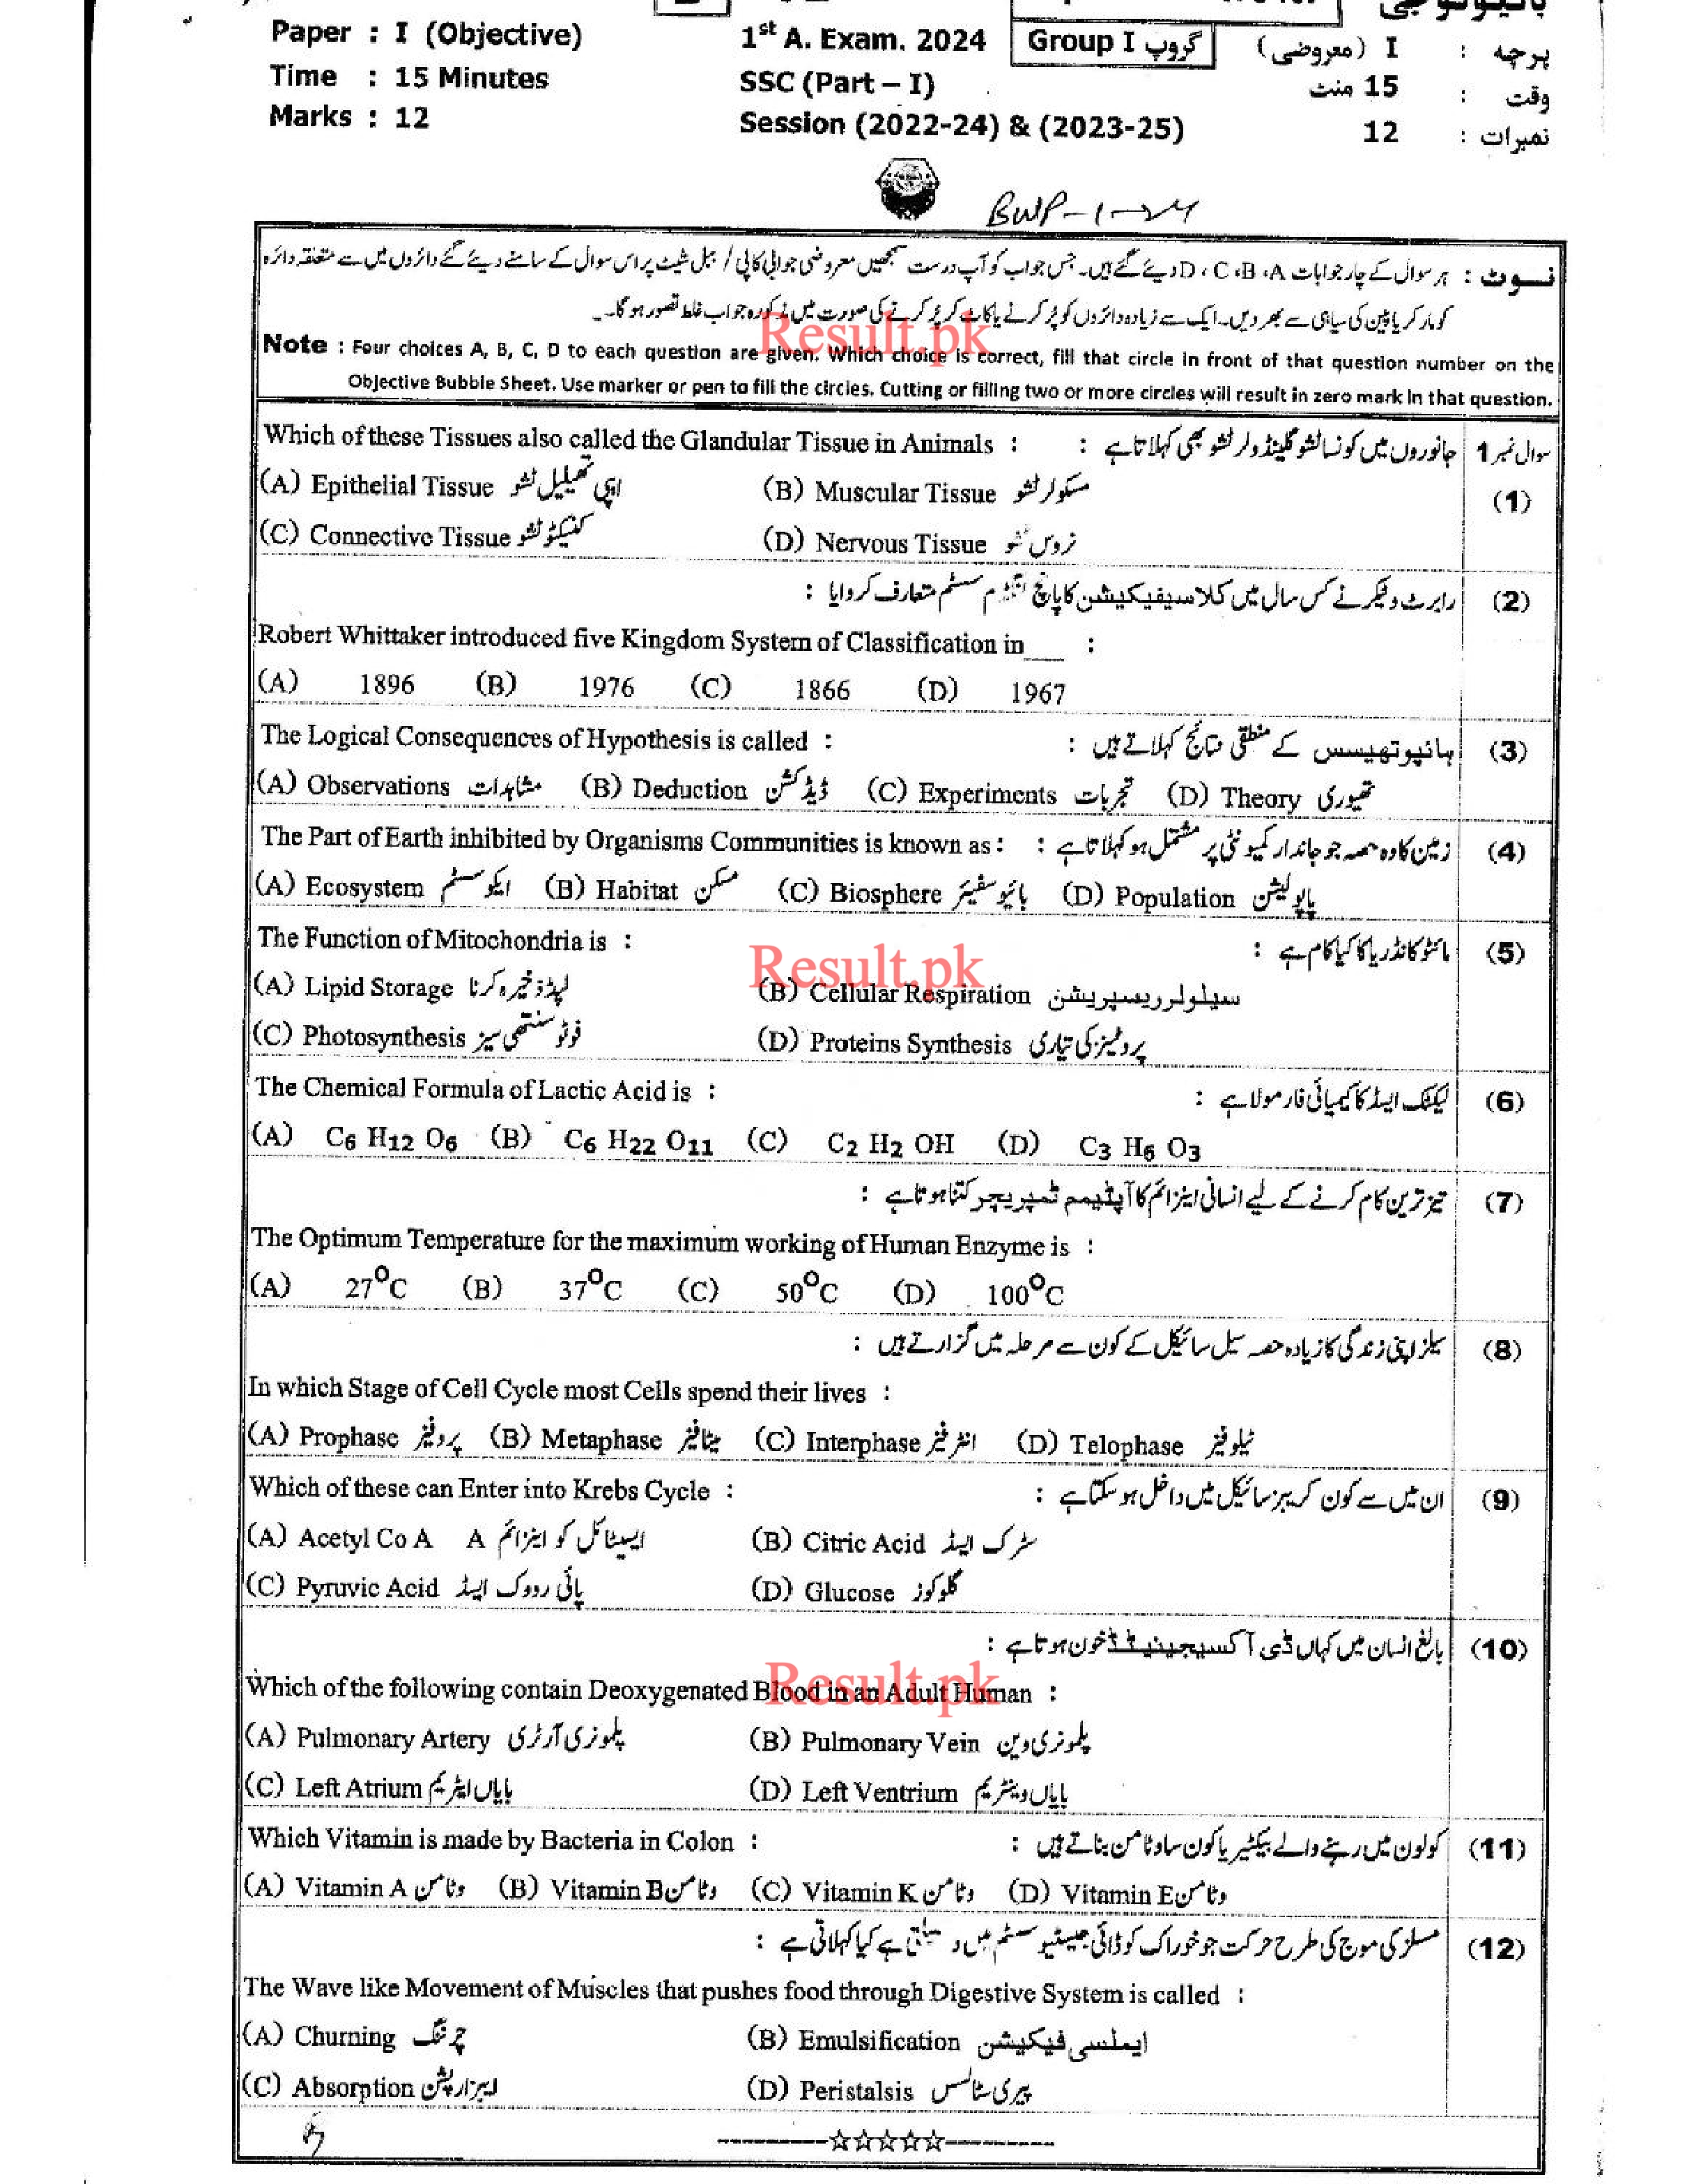 Paper : I (Objective) 1st A. Exam. 2024 Group I گروپ پرچہ : I (معروضی)
Time : 15 Minutes SSC (Part – I) وقت : 15 منٹ
Marks : 12 Session (2022-24) & (2023-25) نمبرات : 12
BWP-1-24
نوٹ : ہر سوال کے چار جوابات A، B، C، D دیئے گئے ہیں۔ جس جواب کو آپ درست سمجھیں معروضی جوابی کاپی / ببل شیٹ پر اس سوال کے سامنے دیئے گئے دائروں میں سے متعلقہ دائرہ
کو مارکر یا پین کی سیاہی سے بھر دیں۔ ایک سے زیادہ دائروں کو پُر کرنے یا کاٹ کر پُر کرنے کی صورت میں مذکورہ جواب غلط تصور ہو گا۔
Result.pk
Note : Four choices A, B, C, D to each question are given. Which choice is correct, fill that circle in front of that question number on the
Objective Bubble Sheet. Use marker or pen to fill the circles. Cutting or filling two or more circles will result in zero mark in that question.
Which of these Tissues also called the Glandular Tissue in Animals : جانوروں میں کونسا ٹشو گلینڈولر ٹشو بھی کہلاتا ہے : سوال نمبر 1
(A) Epithelial Tissue اپی تھیلیل ٹشو (B) Muscular Tissue مسکولر ٹشو (1)
(C) Connective Tissue کنیکٹو ٹشو (D) Nervous Tissue نروس ٹشو
رابرٹ وٹیکر نے کس سال میں کلاسیفیکیشن کا پانچ کنگڈم سسٹم متعارف کروایا : (2)
Robert Whittaker introduced five Kingdom System of Classification in___ :
(A) 1896 (B) 1976 (C) 1866 (D) 1967
The Logical Consequences of Hypothesis is called : ہائپوتھیسس کے منطقی نتائج کہلاتے ہیں : (3)
(A) Observations مشاہدات (B) Deduction ڈیڈکشن (C) Experiments تجربات (D) Theory تھیوری
The Part of Earth inhibited by Organisms Communities is known as : زمین کا وہ حصہ جو جاندار کمیونٹی پر مشتمل ہو کہلاتا ہے : (4)
(A) Ecosystem ایکو سسٹم (B) Habitat مسکن (C) Biosphere بائیو سفیئر (D) Population پاپولیشن
The Function of Mitochondria is : مائٹو کانڈریا کا کیا کام ہے : (5)
Result.pk
(A) Lipid Storage لپڈ ذخیرہ کرنا (B) Cellular Respiration سیلولر ریسپریشن
(C) Photosynthesis فوٹو سنتھی سیز (D) Proteins Synthesis پروٹینز کی تیاری
The Chemical Formula of Lactic Acid is : لیکٹک ایسڈ کا کیمیائی فارمولا ہے : (6)
(A) C6 H12 O6 (B) C6 H22 O11 (C) C2 H2 OH (D) C3 H6 O3
تیز ترین کام کرنے کے لیے انسانی اینزائم کا آپٹیمم ٹمپریچر کتنا ہوتا ہے : (7)
The Optimum Temperature for the maximum working of Human Enzyme is :
(A) 27°C (B) 37°C (C) 50°C (D) 100°C
سیلز اپنی زندگی کا زیادہ حصہ سیل سائیکل کے کون سے مرحلہ میں گزارتے ہیں : (8)
In which Stage of Cell Cycle most Cells spend their lives :
(A) Prophase پروفیز (B) Metaphase میٹافیز (C) Interphase انٹرفیز (D) Telophase ٹیلوفیز
Which of these can Enter into Krebs Cycle : ان میں سے کون کریبز سائیکل میں داخل ہو سکتا ہے : (9)
(A) Acetyl Co A ایسیٹائل کو اینزائم A (B) Citric Acid سٹرک ایسڈ
(C) Pyruvic Acid پائی رووک ایسڈ (D) Glucose گلوکوز
بالغ انسان میں کہاں ڈی آکسیجینیٹڈ خون ہوتا ہے : (10)
Result.pk
Which of the following contain Deoxygenated Blood in an Adult Human :
(A) Pulmonary Artery پلمونری آرٹری (B) Pulmonary Vein پلمونری وین
(C) Left Atrium بایاں ایٹریم (D) Left Ventrium بایاں وینٹریم
Which Vitamin is made by Bacteria in Colon : کولون میں رہنے والے بیکٹیریا کون سا وٹامن بناتے ہیں : (11)
(A) Vitamin A وٹامن (B) Vitamin B وٹامن (C) Vitamin K وٹامن (D) Vitamin E وٹامن
مسلز کی موج کی طرح حرکت جو خوراک کو ڈائی جیسٹیو سسٹم میں دھکیلتی ہے کیا کہلاتی ہے : (12)
The Wave like Movement of Muscles that pushes food through Digestive System is called :
(A) Churning چرننگ (B) Emulsification ایملسی فیکیشن
(C) Absorption ایبزارپشن (D) Peristalsis پیری سٹالسس
----------☆☆☆☆☆----------